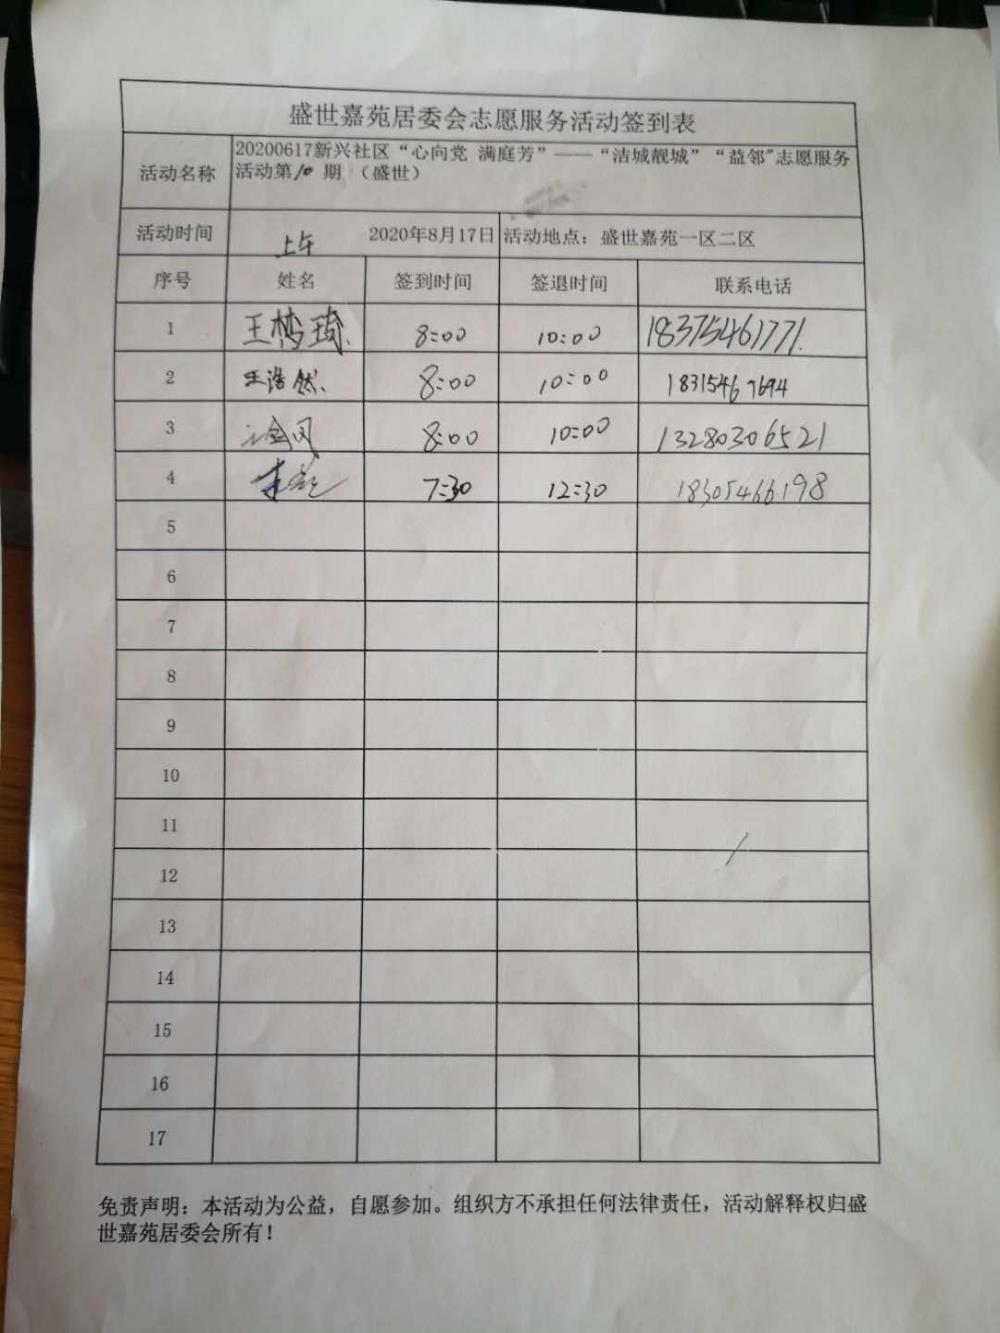 盛世嘉苑居委会志愿服务活动签到表
活动名称
20200617新兴社区“心向党 满庭芳”——“洁城靓城” “益邻”志愿服务
活动第10期 （盛世）
活动时间 上午 2020年8月17日 活动地点：盛世嘉苑一区二区
序号 姓名 签到时间 签退时间 联系电话
1 王梦琦 8:00 10:00 18375461771
2 王浩然 8:00 10:00 18315467694
3 8:00 10:00 13280306521
4 7:30 12:30 18305466198
5
6
7
8
9
10
11
12
13
14
15
16
17
免责声明：本活动为公益，自愿参加。组织方不承担任何法律责任，活动解释权归盛
世嘉苑居委会所有！